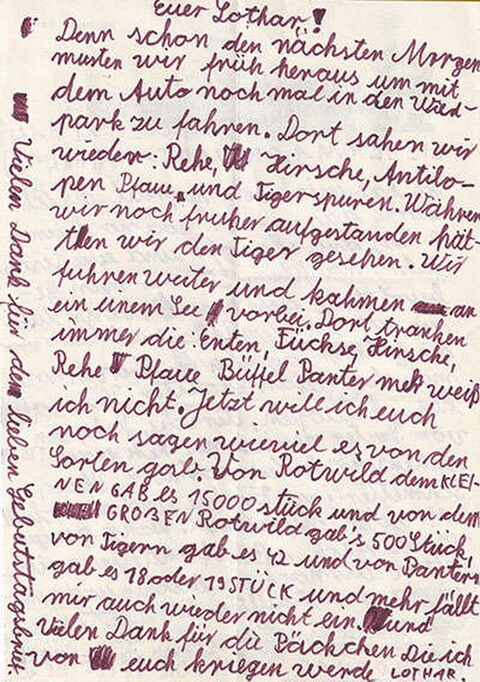 Euer Lothar!
Denn schon den nächsten Morgen
musten wir früh heraus um mit
dem Auto noch mal in den Wild-
park zu fahren. Dort sahen wir
wieder: Rehe, Hirsche, Antilo-
pen Pfaue und Tigerspuren. Währen
wir noch früher aufgestanden hät-
ten wir den Tiger gesehen. Wir
fuhren weiter und kahmen an
ein einem See vorbei. Dort tranken
immer die: Enten, Füchse, Hirsche,
Rehe Pfaue Büffel Panter mehr weiß
ich nicht. Jetzt will ich euch
noch sagen wieviel es von den
Sorten gab. Von Rotwild dem KLEI-
NEN GAB es 15000 stück und von dem
GROßEN Rotwild gab's 500 Stück,
von Tigern gab es 42 und von Pantern
gab es 18 oder 19 STÜCK und mehr fällt
mir auch wieder nicht ein. und
Vielen Dank für di Bäckchen Die ich
von euch kriegen werde LOTHAR.
Vielen Dank für den lieben Gebutstagsbrief.